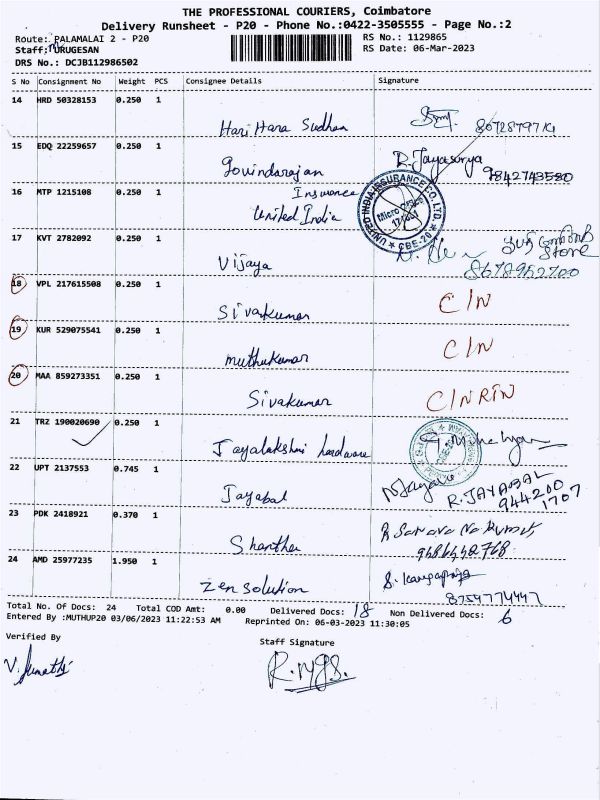 THE PROFESSIONAL COURIERS, Coimbatore
Delivery Runsheet - P20 - Phone No.:0422-3505555 - Page No.:2
Route: PALAMALAI 2 - P20 RS No.: 1129865
Staff: MURUGESAN RS Date: 06-Mar-2023
DRS No.: DCJB112986502
S No Consignment No Weight PCS Consignee Details Signature
14 HRD 50328153 0.250 1
Hari Hara Sudhan
15 EDQ 22259657 0.250 1
Govindarajan R. Jayasurya 9842743580
16 MTP 1215108 0.250 1 Insurance
United India
UNITED INDIA INSURANCE CO. LTD. Micro Office CBE-20
17 KVT 2782092 0.250 1
Vijaya Store
18 VPL 217615508 0.250 1
Sivakumar C/N
19 KUR 529075541 0.250 1
muthukumar C/N
20 MAA 859273351 0.250 1
Sivakumar C/N RTN
21 TRZ 190020690 0.250 1
Jayalakshmi hardware
22 UPT 2137553 0.745 1
Jayabal R. JAYABAL
944200
1707
23 PDK 2418921 0.370 1
Shantha
24 AMD 25977235 1.950 1
Zen solution 8754774447
Total No. Of Docs: 24 Total COD Amt: 0.00 Delivered Docs: 18 Non Delivered Docs: 6
Entered By :MUTHUP20 03/06/2023 11:22:53 AM Reprinted On: 06-03-2023 11:30:05
Verified By Staff Signature